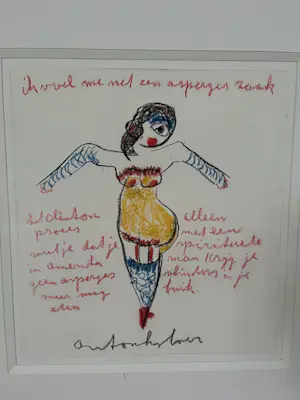 ik voel me net een asperges zaak
het Clinton
proces
weet je dat je
in amerika
geen asperges
meer mag
eten
alleen
met een
spirituele
man krijg je
vlinders in je
buik.